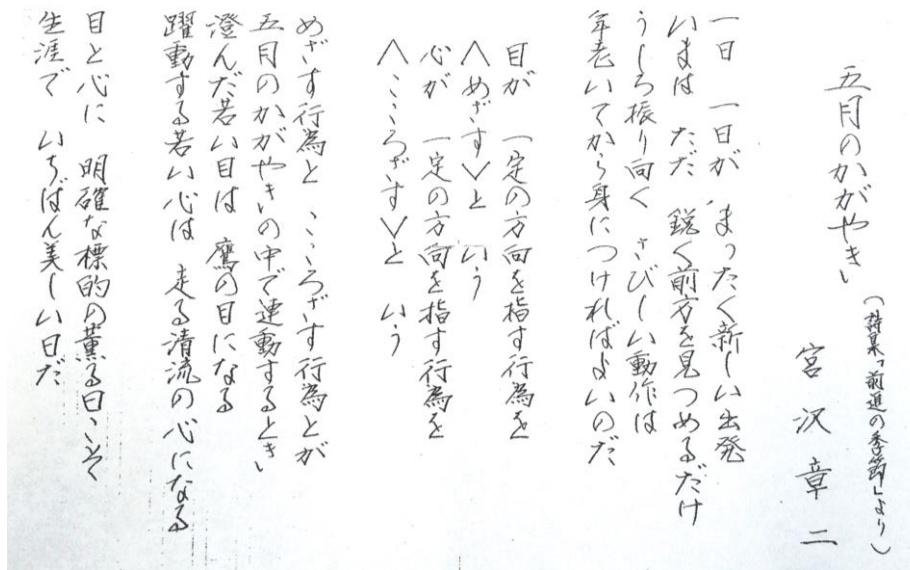 五月のかがやき
(詩集「前進の季節」より)
宮沢章二
一日 一日が まったく新しい出発
いまは ただ 鋭く前方を見つめるだけ
うしろ振り向く さびしい動作は
年老いてから身につければよいのだ
目が 一定の方向を指す行為を
〈めざす〉と いう
心が 一定の方向を指す行為を
〈こころざす〉と いう
めざす行為と こころざす行為とが
五月のかがやきの中で連動するとき
澄んだ若い目は 鷹の目になる
躍動する若い心は 走る清流の心になる
目と心に 明確な標的の薫る日こそ
生涯で いちばん美しい日だ